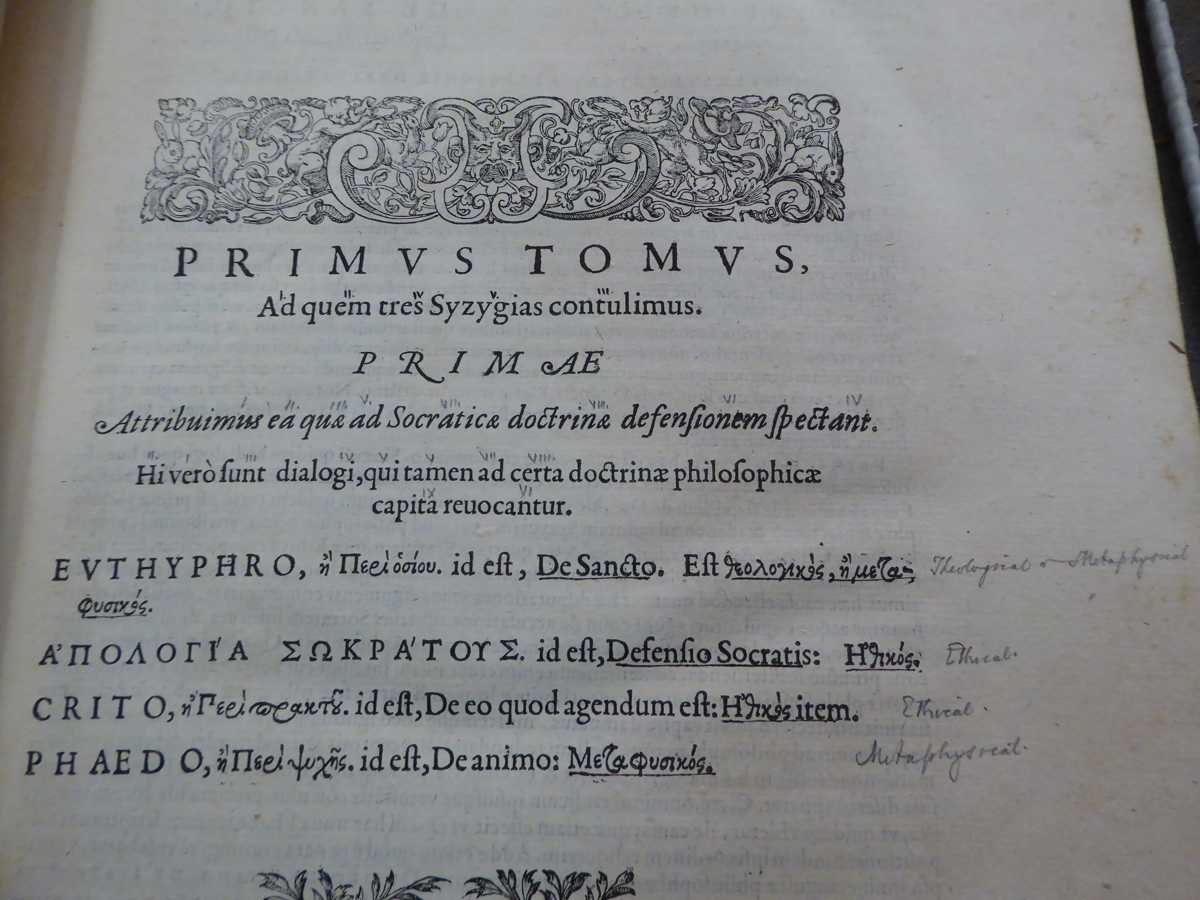 PRIMVS TOMVS,
Ad quem tres Syzygias contulimus.
PRIMAE
Attribuimus ea quæ ad Socraticæ doctrinæ defenſionem ſpectant.
Hi verò ſunt dialogi, qui tamen ad certa doctrinæ philoſophicæ
capita reuocantur.
EVTHYPHRO, ἢ Περὶ ὁσίου. id eſt, De Sancto. Eſt θεολογικός, ἢ μετα- Theological or Metaphysical
φυσικός.
ἈΠΟΛΟΓΊΑ ΣΩΚΡΆΤΟΥΣ. id eſt, Defenſio Socratis: Ἠθικός. Ethical.
CRITO, ἢ Περὶ πρακτοῦ. id eſt, De eo quod agendum eſt: Ἠθικὸς item. Ethical.
PHAEDO, ἢ Περὶ ψυχῆς. id eſt, De animo: Μεταφυσικός. Metaphysical.